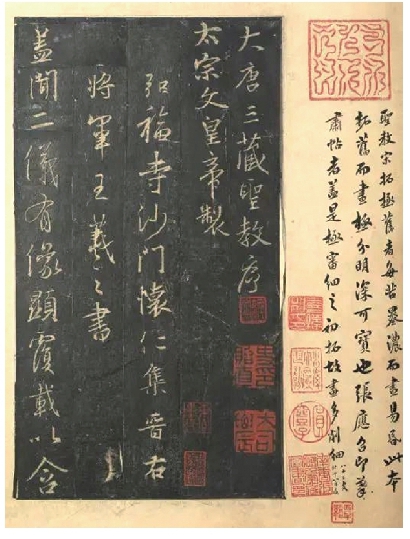 聖教宋拓極舊者每苦墨濃而畫易昏此本
拓舊而畫極分明深可寶也張應召印
肅帖者蓋是極當細之初拓故畫多削細
大唐三藏聖教序
太宗文皇帝製
弘福寺沙門懷仁集晉右
將軍王羲之書
蓋聞二儀有像顯覆載以含